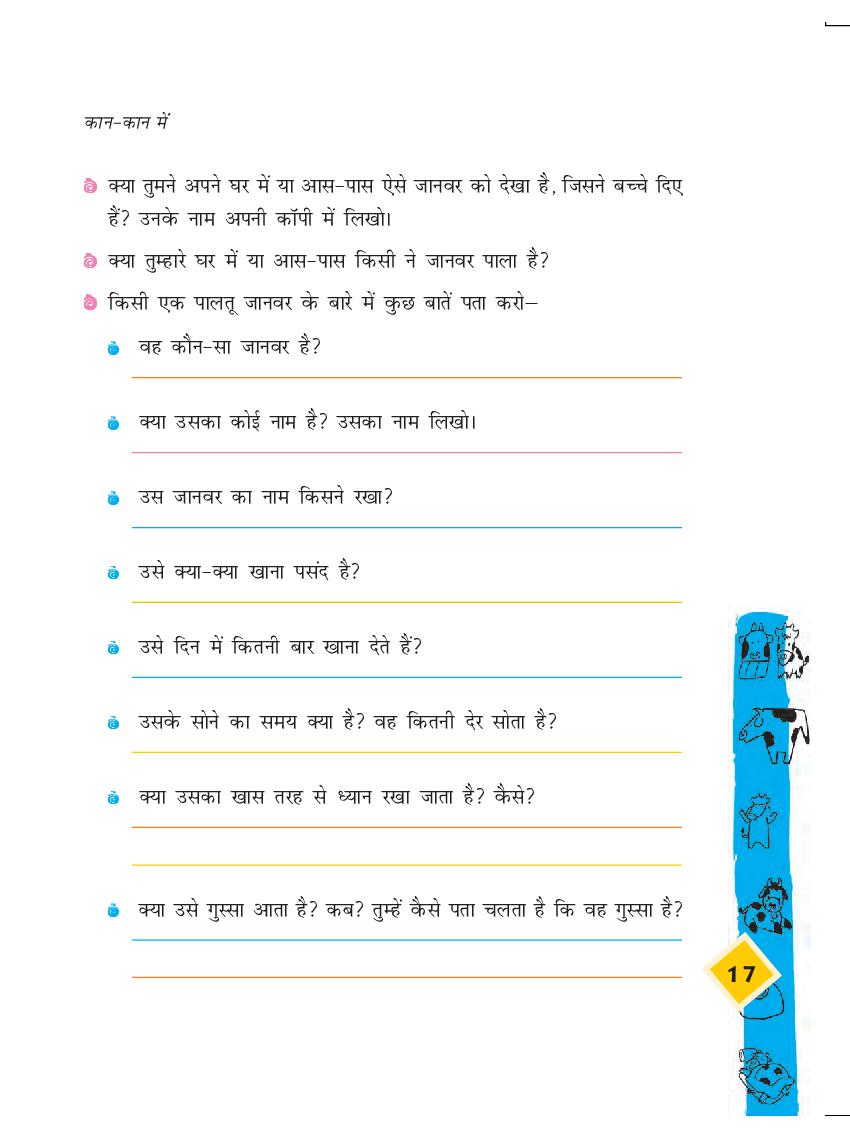 कान-कान में
क्या तुमने अपने घर में या आस-पास ऐसे जानवर को देखा है, जिसने बच्चे दिए
हैं? उनके नाम अपनी कॉपी में लिखो।
क्या तुम्हारे घर में या आस-पास किसी ने जानवर पाला है?
किसी एक पालतू जानवर के बारे में कुछ बातें पता करो—
वह कौन-सा जानवर है?
क्या उसका कोई नाम है? उसका नाम लिखो।
उस जानवर का नाम किसने रखा?
उसे क्या-क्या खाना पसंद है?
उसे दिन में कितनी बार खाना देते हैं?
उसके सोने का समय क्या है? वह कितनी देर सोता है?
क्या उसका खास तरह से ध्यान रखा जाता है? कैसे?
क्या उसे गुस्सा आता है? कब? तुम्हें कैसे पता चलता है कि वह गुस्सा है?
17